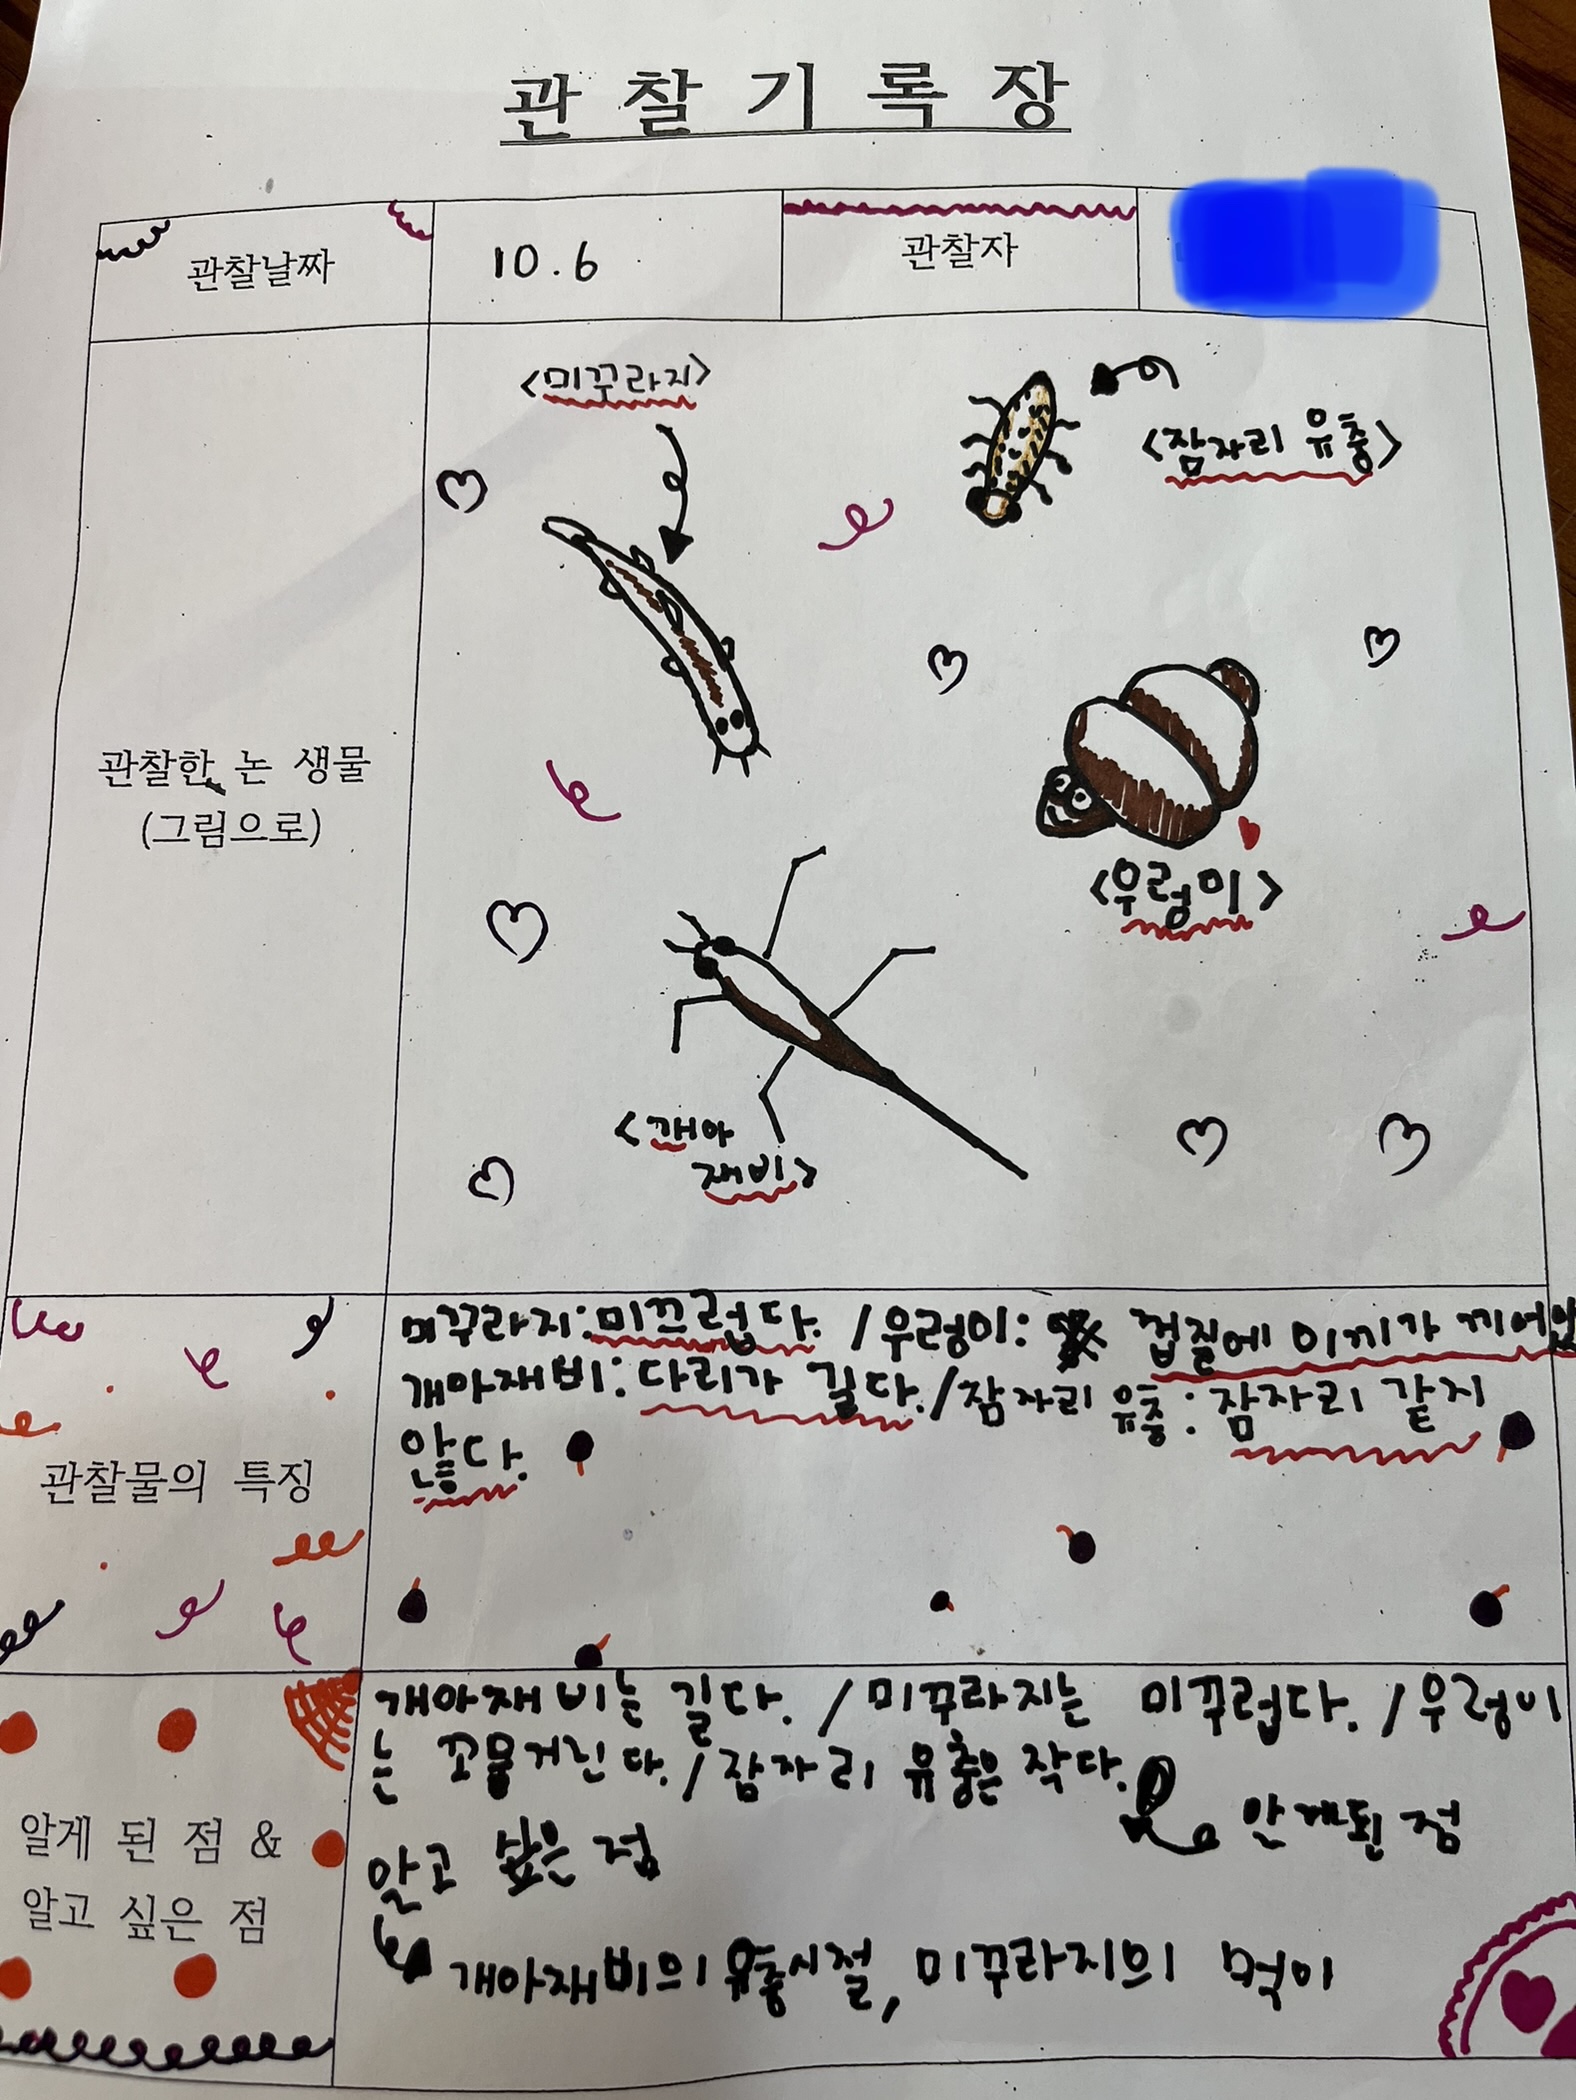 관찰기록장
관찰날짜 10.6 관찰자
관찰한 논 생물
(그림으로)
<미꾸라지>
<잠자리 유충>
<우렁이>
<개아
재비>
관찰물의 특징
미꾸라지: 미끄럽다. / 우렁이: 껍질에 이끼가 끼어있
개아재비: 다리가 길다. / 잠자리 유충: 잠자리 같지
않다.
알게 된 점 &
알고 싶은 점
개아재비는 길다. / 미꾸라지는 미꾸럽다. / 우렁이
는 꼬물거린다. / 잠자리 유충은 작다.
안게된 점
알고 싶은 점
개아재비의 유충시절, 미꾸라지의 먹이